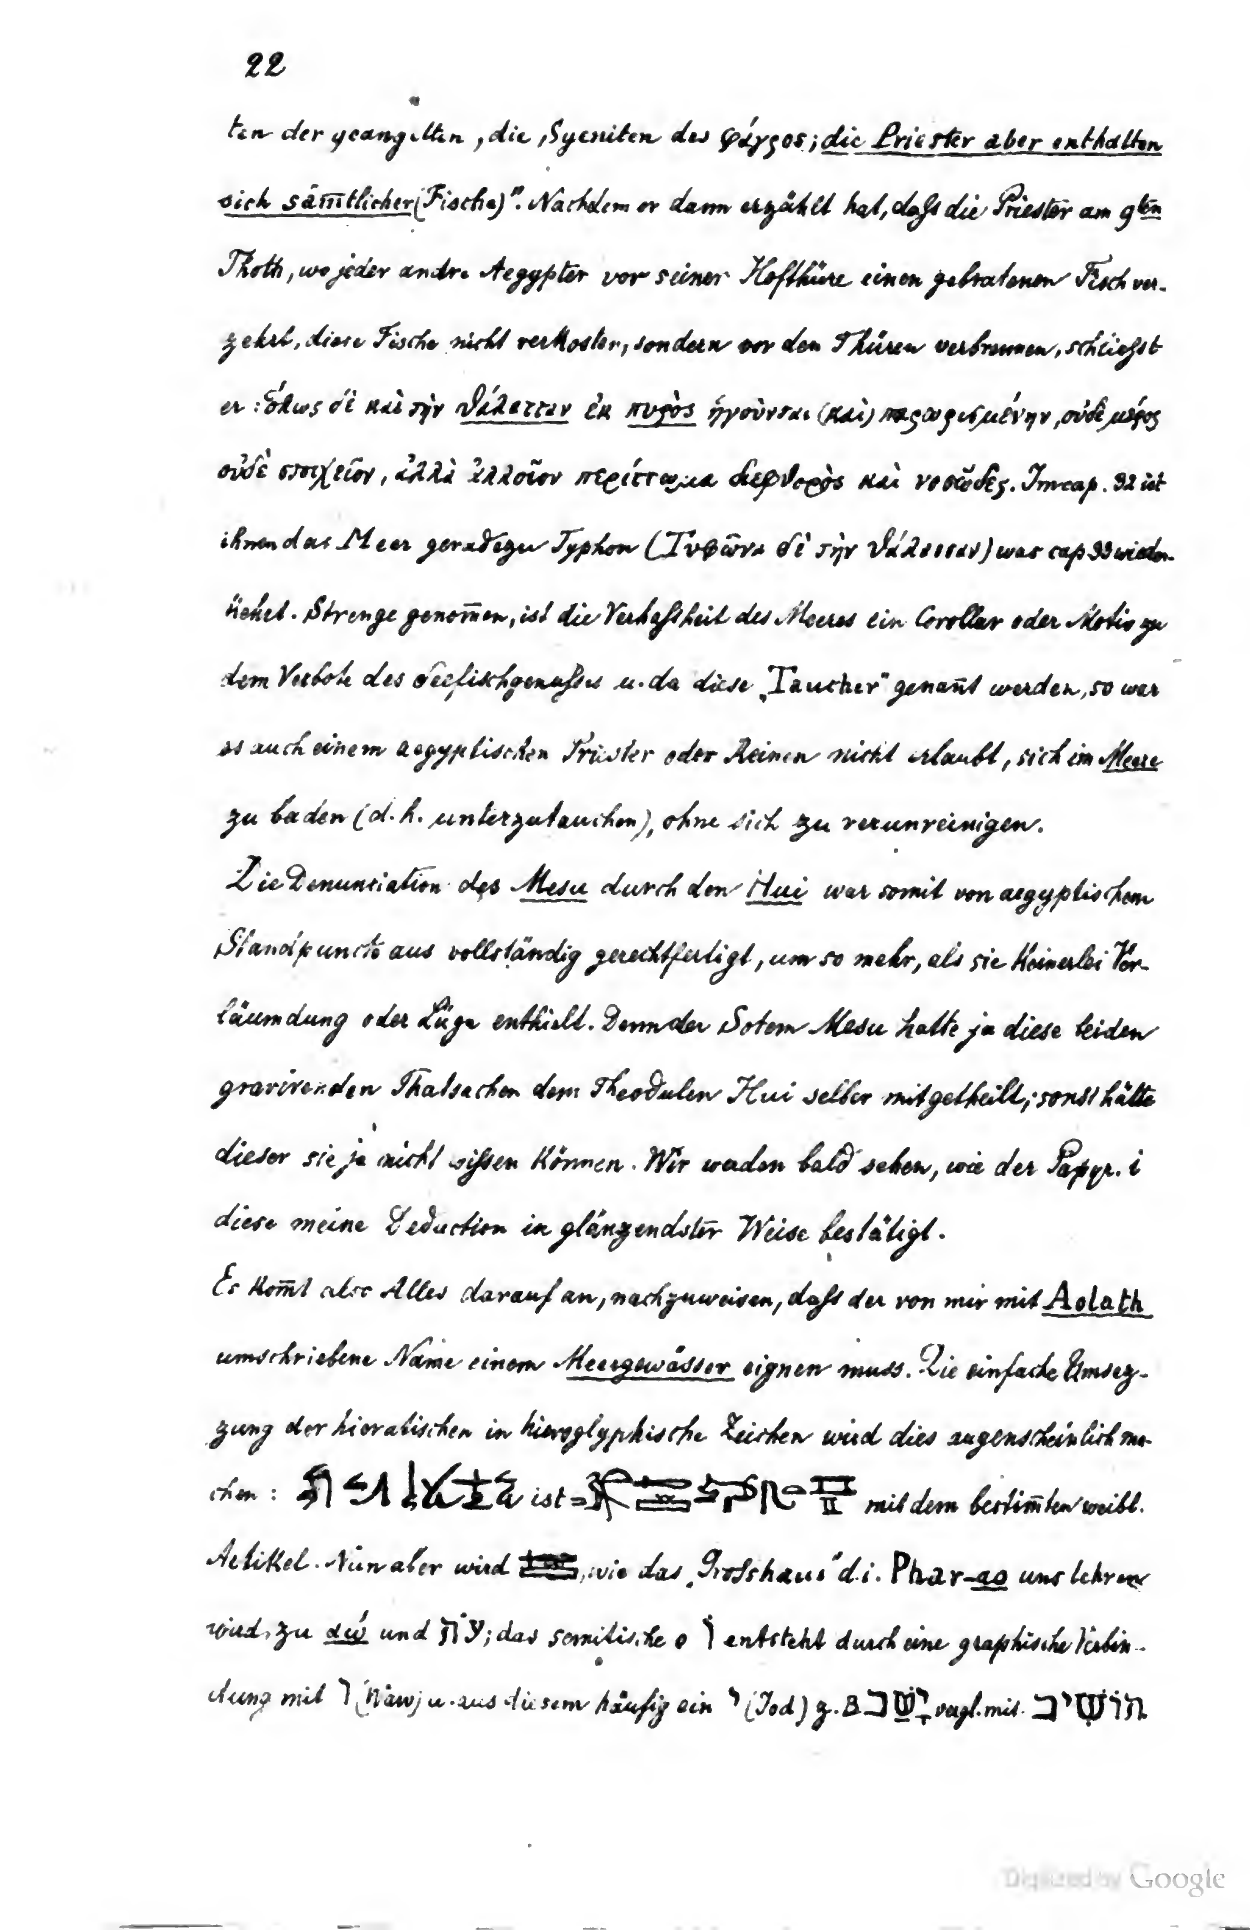 22
ten der geangelten, die Syeniten des φάγρος; die Priester aber enthalten
sich säm̄tlicher (Fische)". Nachdem er dann erzählt hat, daſs die Priester am 9ten
Thoth, wo jeder andre Aegypter vor seiner Hofthüre einen gebratenen Fisch ver-
zehrt, diese Fische nicht verkosten, sondern vor den Thüren verbrennen, schlieſst
er: ὅλως δὲ καὶ τὴν θάλατταν ἐκ πυρὸς ἡγοῦνται (καὶ) παρωρισμένην, οὐδὲ μέρος
οὐδὲ στοιχεῖον, ἀλλὰ ἀλλοῖον περίττωμα διεφθορὸς καὶ νοσῶδες. Im cap. 32 ist
ihnen das Meer geradezu Typhon (Τυφῶνα δὲ τὴν θάλασσαν) was cap 33 wieder-
kehrt. Strenge genom̄en, ist die Verhaſstheit des Meeres ein Corollar oder Motiv zu
dem Verbote des Seefischgenuſses u. da diese „Taucher" genan̄t werden, so war
es auch einem aegyptischen Priester oder Reinen nicht erlaubt, sich im Meere
zu baden (d. h. unterzutauchen), ohne sich zu verunreinigen.
Die Denunciation des Mesu durch den Hui war somit von aegyptischem
Standpuncte aus vollständig gerechtfertigt, um so mehr, als sie keinerlei Ver-
läumdung oder Lüge enthielt. Denn der Sotem Mesu hatte ja diese beiden
gravirenden Thatsachen dem Theodulen Hui selber mitgetheilt; sonst hätte
dieser sie ja nicht wiſsen können. Wir werden bald sehen, wie der Papyr. i
diese meine Deduction in glänzendster Weise bestätigt.
Es kom̄t also Alles darauf an, nachzuweisen, daſs der von mir mit Aolath
umschriebene Name einem Meergewässer eignen muss. Die einfache Umsez-
zung der hieratischen in hieroglyphische Zeichen wird dies augenscheinlich ma-
chen: ist = mit dem bestim̄ten weibl.
Artikel. Nun aber wird, wie das „Groſshaus" d. i. Phar-ao uns lehren
wird, zu und; das semitische o וֹ entsteht durch eine graphische Verbin-
dung mit ו (Wâw) u. aus diesem häufig ein י (Jod) z. B. יָשַׁב vergl. mit הוֹשִׁיב